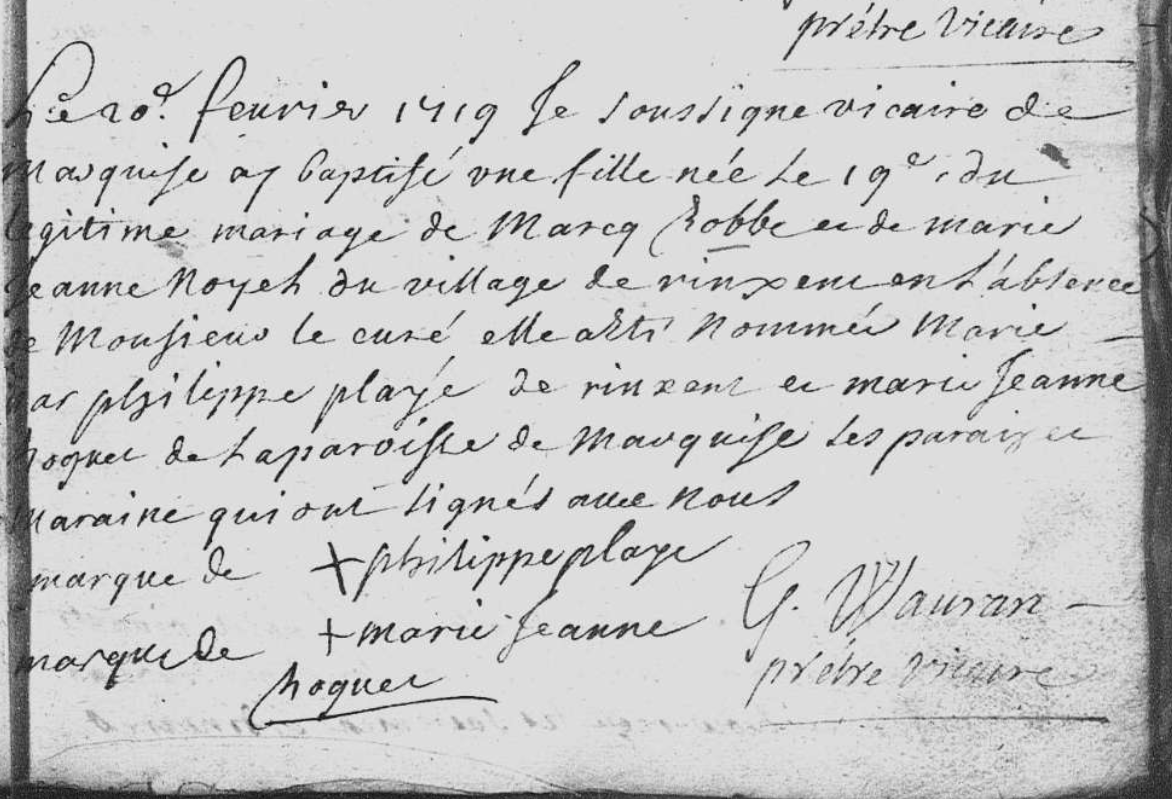 prétre vicaire
Le 20e. feurier 1719 Je soussigne vicaire de
Marquise ay baptisé vne fille née Le 19e. du
legitime mariage de Marcq Robbe et de marie
Jeanne Noyel du village de rinxent en L'absence
de Monsieur le curé elle a esté Nommée Marie
par philippe playe de rinxent et marie Jeanne
hoguet de La paroisse de Marquise Les parain et
Maraine qui ont signés avec Nous
marque de + philippe playe
marque de + marie Jeanne
hoguet
G. Wauran
prétre vicaire